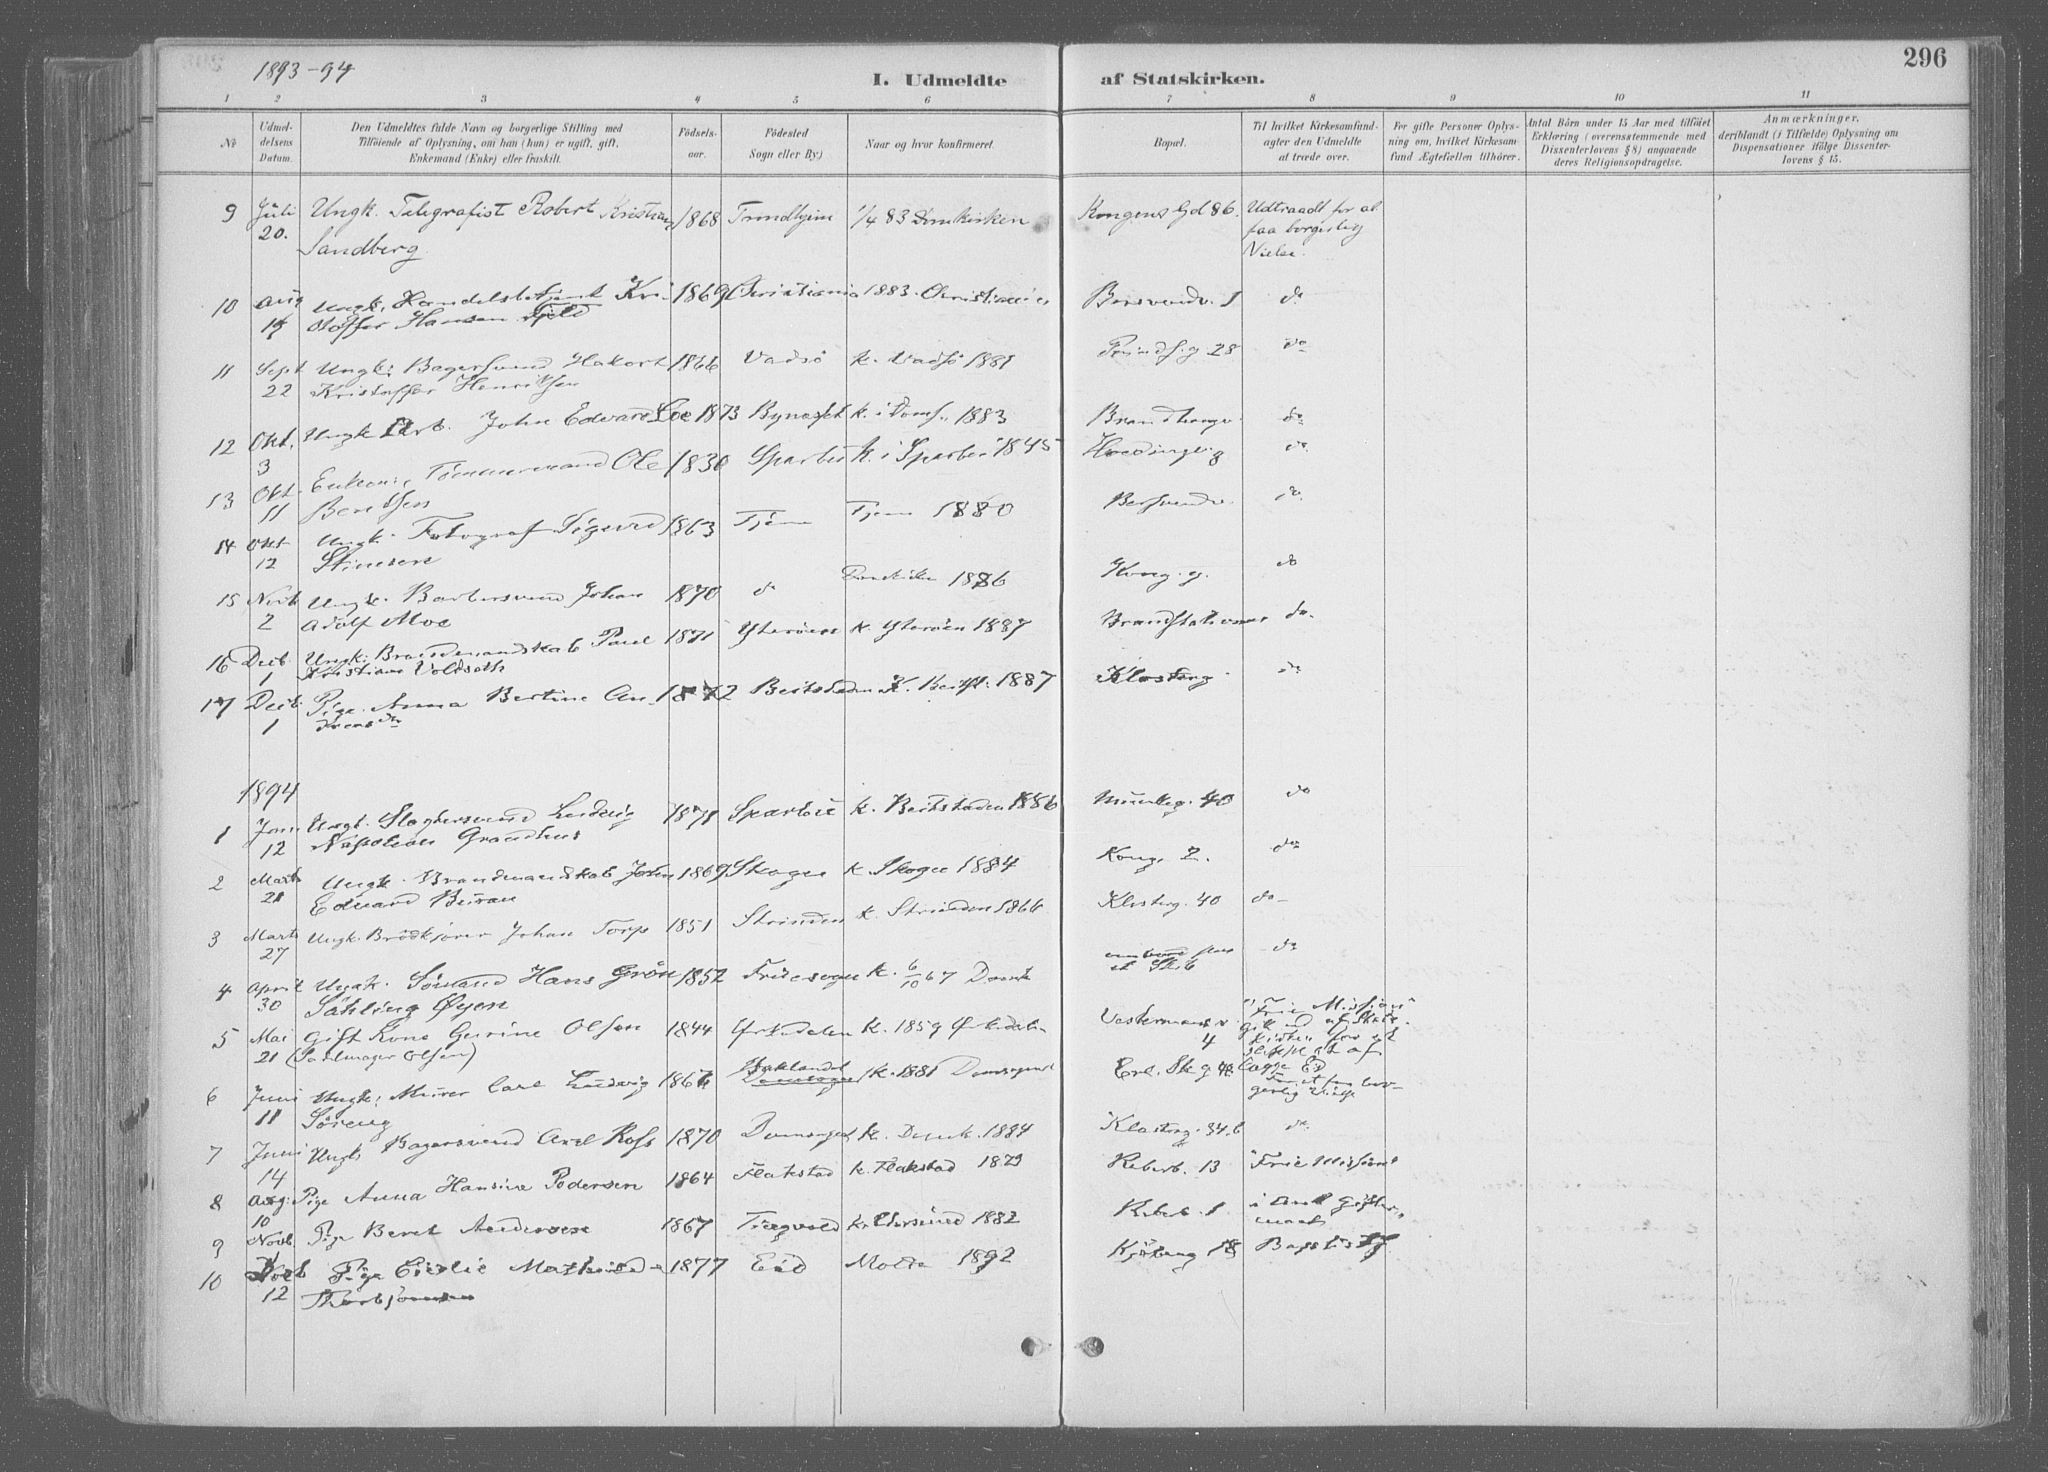 296
1893-94
I. Udmeldte af Statskirken.
1 2 3 4 5 6 7 8 9 10 11
No
Udmeldelsens Datum.
Den Udmeldtes fulde Navn og borgerlige Stilling med Tilføiende af Oplysning, om han (hun) er ugift, gift, Enkemand (Enke) eller fraskilt.
Fødselsaar.
Fødested Sogn eller By.)
Naar og hvor konfirmeret.
Bopæl.
Til hvilket Kirkesamfund agter den Udmeldte at træde over.
For gifte Personer Oplysning om, hvilket Kirkesamfund Ægtefællen tilhører.
Antal Børn under 15 Aar med tilføiet Erklæring (overensstemmende med Dissenterlovens § 8) angaaende deres Religionsopdragelse.
Anmærkninger, deriblandt (i Tilfælde) Oplysning om Dispensationer ifølge Dissenterlovens § 15.
9 Juli 20. Ungk. Telegrafist Robert Kristian Sandberg 1868 Trondhjem 1/4 83 Domkirken Kongens Gd 86. Udtraadt for at faa borgerlig Vielse.
10 Aug 19 Ungk. Handelsbetjent Kristoffer Hansen Fjeld 1869 Christiania 1883 Christiania Bersvendv. 1 do
11 Sept 22 Ungk. Bagersvend Kristoffer Henriksen 1866 Vadsö k. Vadsö 1881 Prindsg. 28 do
12 Okt. 3 Ungk Arb. John Edvard Loe 1873 Bynæsset k. i Doms. 1883 do
13 Okt. 11 Enkem. Tömmermand Ole Bentsen 1830 Sparbu k. i Sparbu 1845 do
14 Okt 12 Ungk. Fotograf Sigurd 1863 1880 Bersvendv. do
15 Novb 2 Ungk. Barbersvend Johan Adolf Moe 1870 do 1886 Kong. g. do
16 Decb. 1 Ungk. Brandmandskab Paul Kristian Voldseth 1871 Ytteröen k. Ytteröen 1887 Brandstationen do.
17 Decb. 1 Pige Anna Bertine 1872 Beitstaden K. Beitst. 1887 Klosterg. do
1894
1 Jan 12 Ungk. Slagtersvend Ludvig Napoleon Grandhus 1871 Sparbu k. Beitstaden 1886 Munkeg. 40 do
2 Marts 21 Ungk. Brandmandskab Johan Edvard 1869 Skogn k. Skogn 1884 Kong. 2. do
3 Marts 27 Ungk. Brödkjörer Johan Torp 1851 Strinden k. Strinden 1866 Klosterg. 40 do
4 April 30 Ungk. Sömand Hans Grön Sahling Øyen 1852 k. 6/10 67 Domk ombord paa et Skib do
5 Mai 21 Gift Kone Gurine Olsen (Sadlmager Olsen) 1844 Ørkedalen k. 1859 Ørkedalen Vestermansv. 4 "Frie Mission" gik ud af Statskirken for at slippe at aflægge Ed
6 Juni 11 Ungk. Murer Carl Ludvig Söreng Baklandet k. 1881 Domsognet borgerlig Vielse
7 Juni 14 Ungk Bagersvend Axel Ross 1870 Domsognet k. Domk. 1884 Klosterg. 34 b do.
8 Aug. 10 Pige Anna Hansine Pedersen 1864 Flakstad k. Flakstad 1879 Reberb. 13 "Frie Mission"
9 Novb. Pige Beret Andersen 1867 1882 Reberb. 1 i Anl Giftermaal
10 Novb 12 Pige Cicilie Mathilde Thorbjörnsen 1877 Eid Molde 1892 18